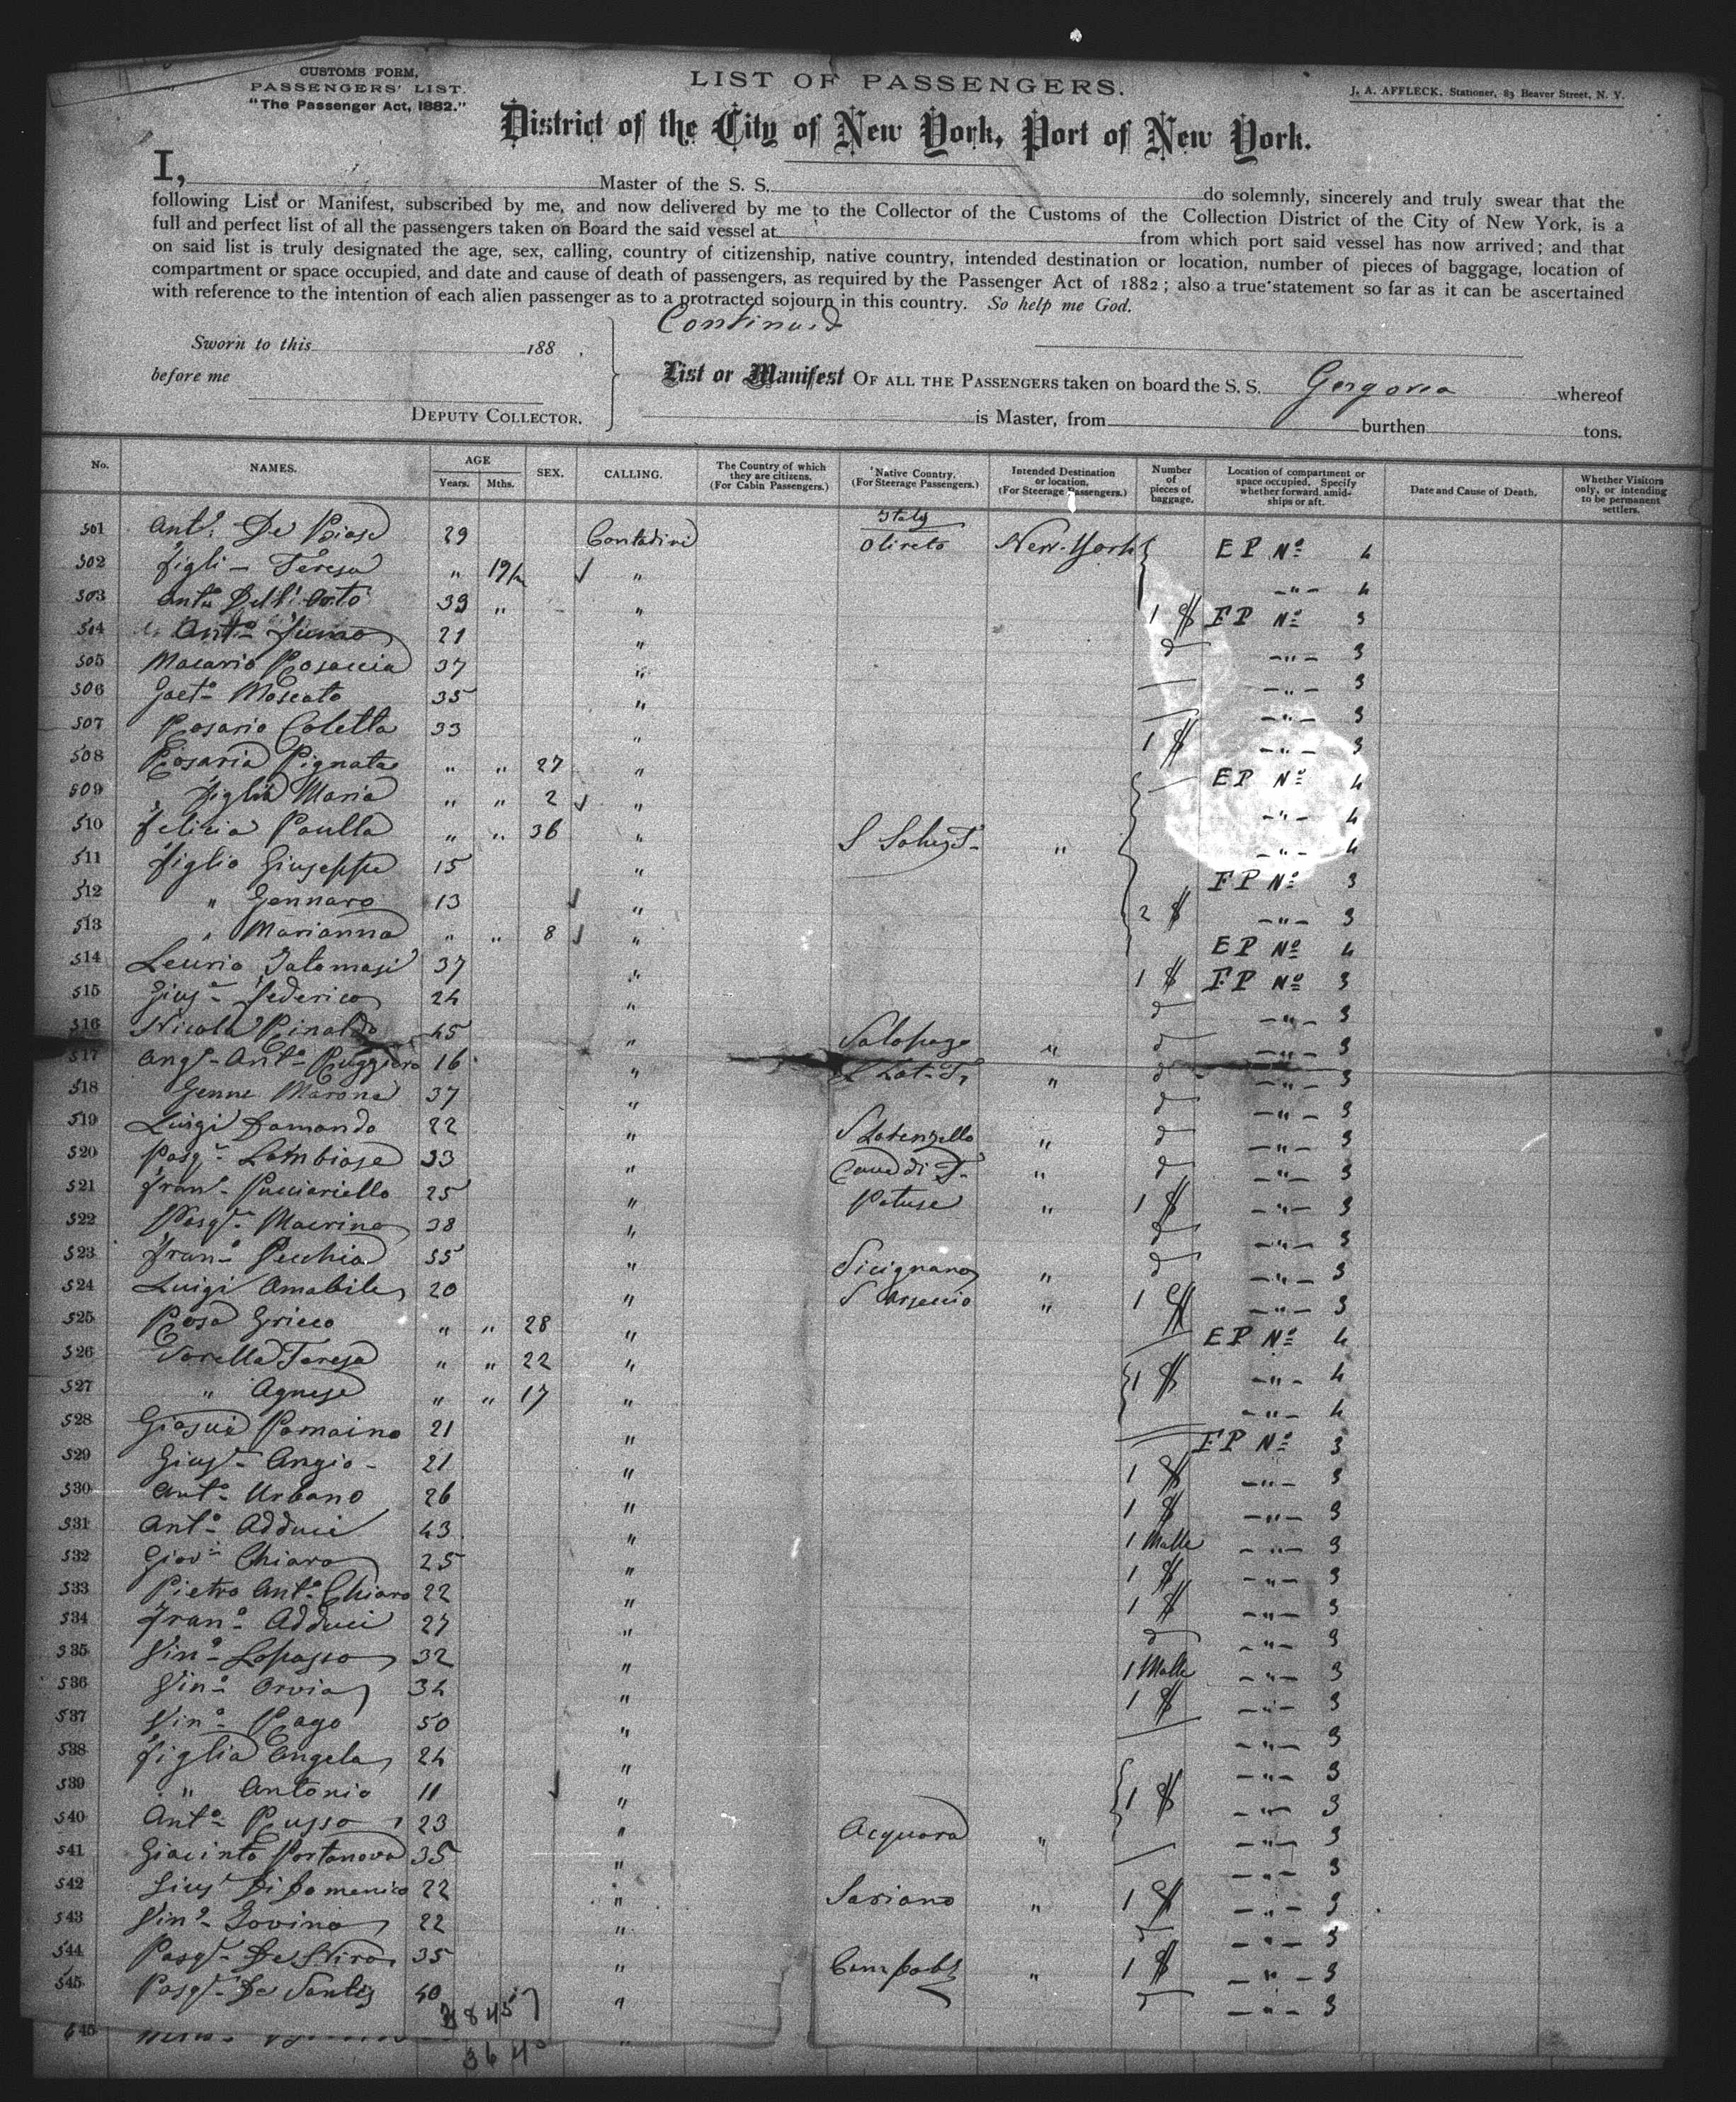 CUSTOMS FORM,
PASSENGERS' LIST.
"The Passenger Act, 1882."
LIST OF PASSENGERS.
J. A. AFFLECK, Stationer, 83 Beaver Street, N. Y.
District of the City of New York, Port of New York.
I, Master of the S. S. do solemnly, sincerely and truly swear that the
following List or Manifest, subscribed by me, and now delivered by me to the Collector of the Customs of the Collection District of the City of New York, is a
full and perfect list of all the passengers taken on Board the said vessel at from which port said vessel has now arrived; and that
on said list is truly designated the age, sex, calling, country of citizenship, native country, intended destination or location, number of pieces of baggage, location of
compartment or space occupied, and date and cause of death of passengers, as required by the Passenger Act of 1882; also a true statement so far as it can be ascertained
with reference to the intention of each alien passenger as to a protracted sojourn in this country. So help me God.
Continued
Sworn to this 188 .
before me
DEPUTY COLLECTOR.
List or Manifest OF ALL THE PASSENGERS taken on board the S. S. Gergovia whereof
is Master, from burthen tons.
No. NAMES. AGE Years. Mths. SEX. CALLING. The Country of which they are citizens. (For Cabin Passengers.) Native Country. (For Steerage Passengers.) Intended Destination or location. (For Steerage Passengers.) Number of pieces of baggage. Location of compartment or space occupied. Specify whether forward, amidships or aft. Date and Cause of Death. Whether Visitors only, or intending to be permanent settlers.
Italy
501 Anto. De Biase 29 Contadini Olireto New-York EP No 4
502 figli - Teresa " " -"- 4
503 Anto 39 " " 1 FP No 3
504 Anto 21 " d -"- 3
505 Macario Rosaccia 37 " -"- 3
506 Gaeto Moscato 35 " -"- 3
507 Rosario Coletta 33 " 1 -"- 3
508 Rosaria Pignata " " 27 " EP No 4
509 figlia Maria " " 2 " -"- 4
510 Felicia Paulla " " 36 " " -"- 4
511 figlio Giuseppe 15 " FP No 3
512 " Gennaro 13 " 2 -"- 3
513 " Marianna " " 8 " EP No 4
514 37 " 1 FP No 3
515 Giuse Federico 24 " d -"- 3
516 Nicola Rinaldo 45 " " d -"- 3
517 Ange Anto Ruggiero 16 " " d -"- 3
518 Marona 37 " d -"- 3
519 Luigi Damando 22 " S Lorenzello " d -"- 3
520 Pasqe Lambiase 33 " " d -"- 3
521 Frano Pucciariello 25 " " 1 -"- 3
522 Pasqe Macrina 38 " d -"- 3
523 Frano Pecchia 35 " Sicignano " d -"- 3
524 Luigi Amabile 20 " S Arsenio " 1 -"- 3
525 Rosa Grieco " " 28 " EP No 4
526 Sorella Teresa " " 22 " 1 -"- 4
527 " Agnese " " 17 " -"- 4
528 Giosue Romaino 21 " FP No 3
529 Giuse Angio 21 " 1 -"- 3
530 Anto Urbano 26 " 1 -"- 3
531 Anto Adduci 43 " 1 Malle -"- 3
532 Giovi Chiaro 25 " 1 -"- 3
533 Pietro Anto Chiaro 22 " 1 -"- 3
534 Frano Adduci 27 " d -"- 3
535 Vino Lopasso 32 " 1 Malle -"- 3
536 Vino Orvia 34 " 1 -"- 3
537 Vino Rago 50 " -"- 3
538 figlia Angela 24 " -"- 3
539 " Antonio 11 " 1 -"- 3
540 Anto Russo 23 " Acquara " -"- 3
541 Giacinto Portanova 35 " -"- 3
542 Giuse Di Domenico 22 " Sariano " 1 -"- 3
543 Vino Iovino 22 " d -"- 3
544 Pasqe De Niro 35 " " 1 -"- 3
545 Pasqe De Santis 40 " d -"- 3
645 "